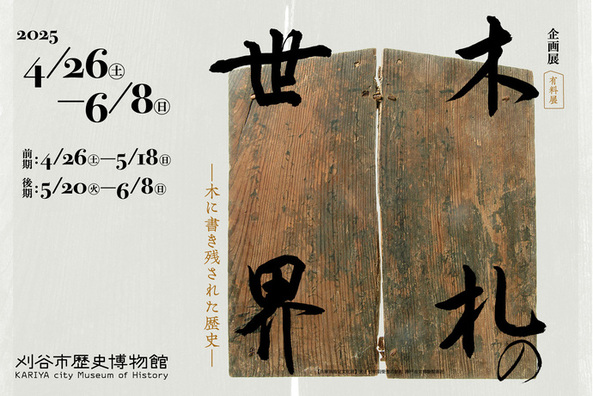 企画展
有料展
木札の
世界
―木に書き残された歴史―
2025
4/26㊏
―6/8㊐
前期:4/26㊏―5/18㊐
後期:5/20㊋―6/8㊐
刈谷市歴史博物館
KARIYA city Museum of History